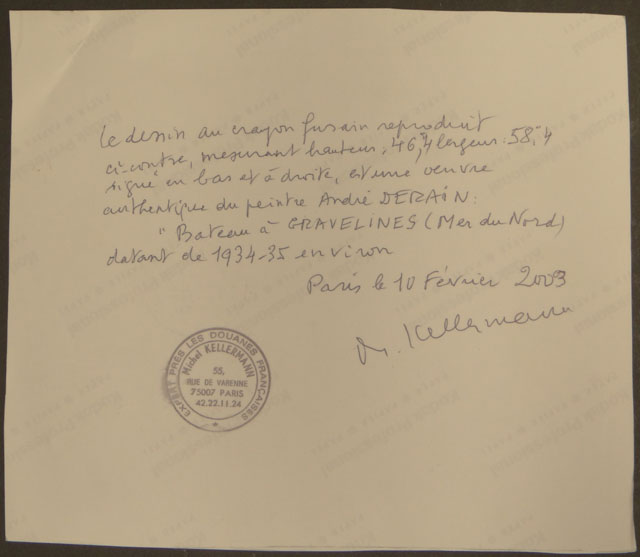 Le dessin au crayon fusain reproduit
ci-contre, mesurant hauteur: 46,4 largeur: 58,4
signé en bas et à droite, est une oeuvre
authentique du peintre André DERAIN:
"Bateau à GRAVELINES (Mer du Nord)
datant de 1934-35 environ
Paris le 10 Février 2003
M. Kellermann
EXPERT PRÈS LES DOUANES FRANÇAISES
Michel KELLERMANN
55,
RUE DE VARENNE
75007 PARIS
42.22.11.24